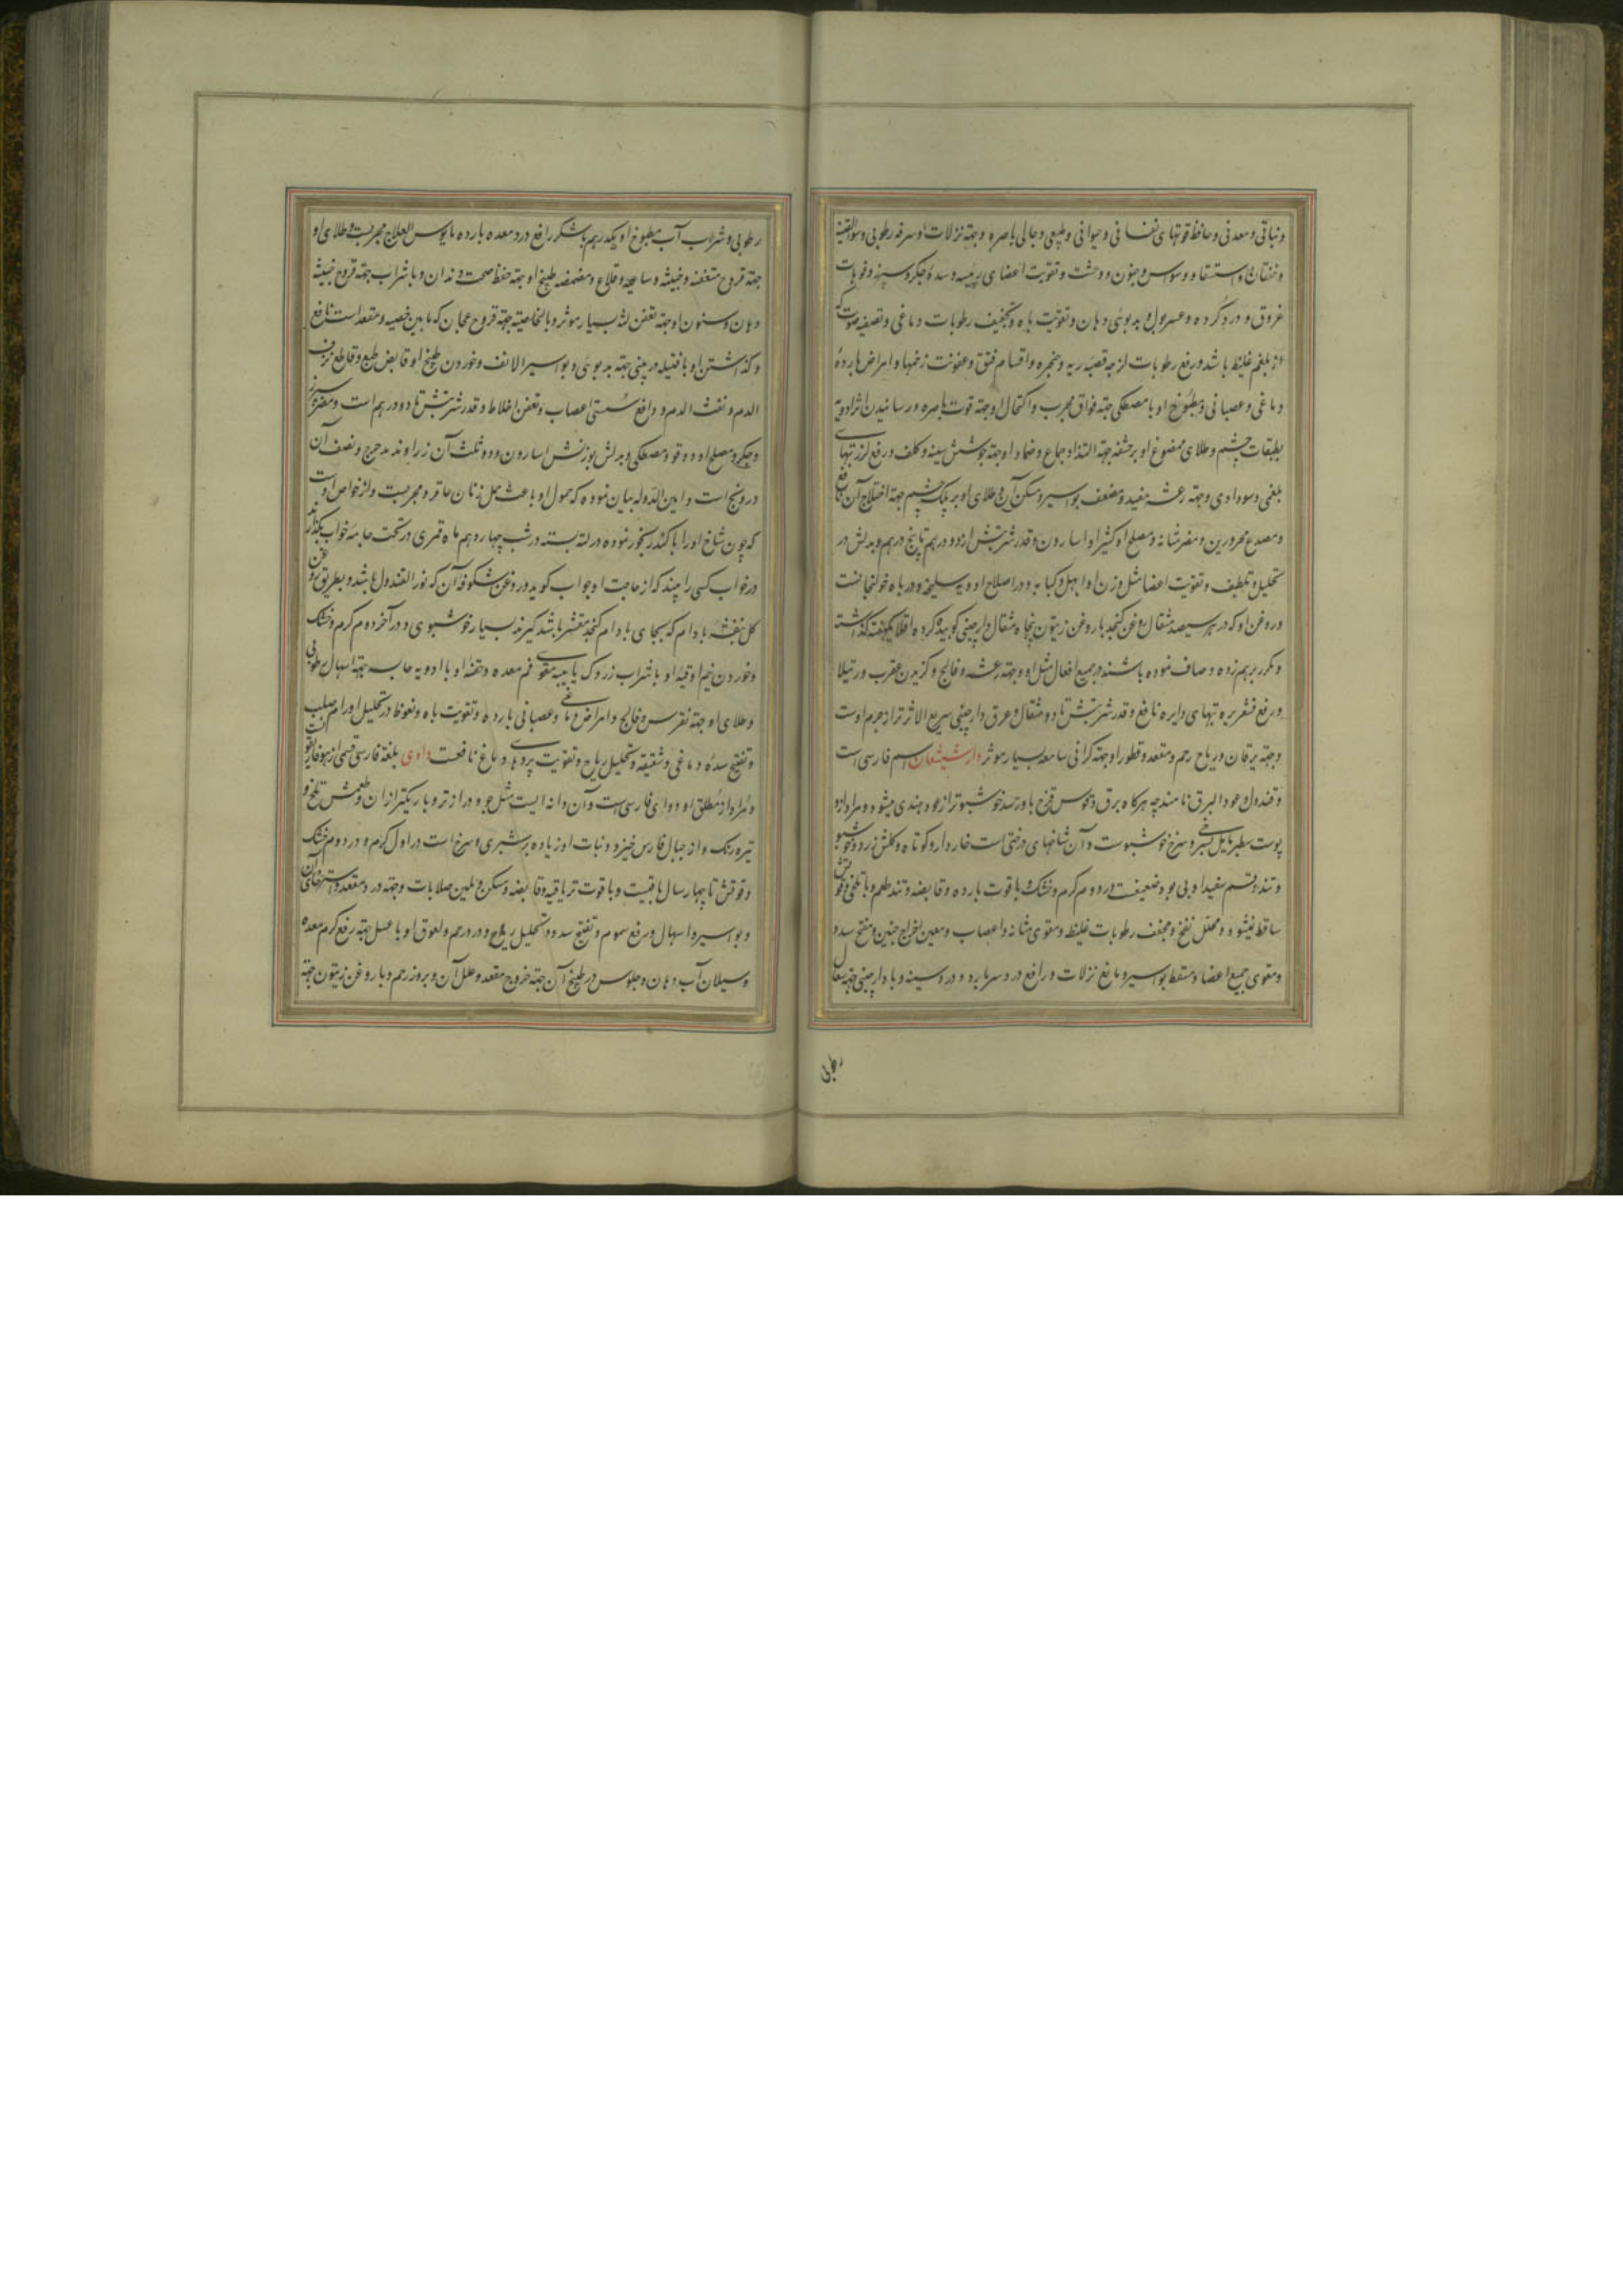 و نباتی و معدنی و حافظ قوتهای نفسانی و حیوانی و طبیعی و جالی باصره و جهة نزلات و سرفه رطوبی و سوء القنیه
و خفقان و استسقا و وسواس و جنون و وحشت و تقویت اعضای رئیسه و سده جگر و سپرز و فوهات
عروق و درد گرده و عسر بول و بدبوئی دهان و تقویت باه و تجفیف رطوبات دماغی و تصفیه صوت که
از بلغم غلیظ باشد و رفع رطوبات لزجه قصبه ریه و حنجره و اقسام فتق و عفونت زخمها و امراض بارده
دماغی و عصبانی و مطبوخ او با مصطکی جهة فواق مجرب و اکتحال او جهة قوت باصره و رسانیدن اثر ادویه
بطبقات چشم و طلای ممضوغ او بر حشفه جهة التذاذ جماع و ضماد او جهة جوشش سینه و کلف و رفع لرز تبهای
بلغمی و سوداوی و جهة رعشه مفید و مضعف بواسیر و مسکن آن و طلای او بر پلک چشم جهة اختلاج آن نافع
و مصدع محرورین و مضر مثانه و مصلح او کثیرا و اسارون و قدر شربتش از دو درهم تا پنج درهم و بدلش در
تحلیل و تلطیف و تقویت اعضا مثل وزن او ابهل و کبابه و در اصلاح ادویه سلیخه و در باه خولنجانست
و روغن او که در هر سیصد مثقال روغن کنجد با روغن زیتون پنجاه مثقال دارچینی کوبیده کرده اقلا یکهفته گذاشته
و مکرر برهم زده و صاف نموده باشند در جمیع افعال مثل او و جهة رعشه و فالج و گزیدن عقرب و رتیلا
و رفع قشعریره تبهای دایره نافع و قدر شربتش تا دو مثقال و عرق دارچینی سریع الاثر تر از جرم اوست
و جهة یرقان و ریاح رحم و مقعد و قطور او جهة گرانی سامعه بسیار موثر دارشیشعان اسم فارسی است
و قندول و عود البرق نامند چه هرگاه برق و قوس قزح باو رسد خوشبوتر از عود هندی میشود و مراد ازو
پوست سطبر مایل بسرخی و سرخ خوشبوست و آن شاخهای درختی است خاردار و کوتاه و گلش زرد و خوشبو
و تند و قسم سفید او بی بو و ضعیفست در دوم گرم و خشک و با قوت بارده و قابضه و تند طعم و با تلخی و قوتش
ساقط نمیشود و محلل نفخ و مجفف رطوبات غلیظه و مقوی مثانه و اعصاب و معین اخراج جنین و مفتح سدد
و مقوی جمیع اعضا و مسقط بواسیر و مانع نزلات و رافع درد سر بارد و درد سینه و با دارچینی جهة سعال
رطوبی
رطوبی و شراب آب مطبوخ او یکدرهم با شکر رافع درد معده بارده مایوس العلاج مجربست و طلای او
جهة قروح متعفنه و خبیثه و ساعیه و قلاع و مضمضه طبیخ او جهة حفظ صحت دندان و با شراب جهة قروح خبیثه
دهان و سنون او جهة تعفن لثه بسیار موثر و بالخاصیته جهة قروح عجان که مابین خصیه و مقعد است نافع
و گذاشتن او با فتیله در بینی جهة بدبوئی و بواسیر الانف و خوردن طبیخ او قابض طبع و قاطع نزف
الدم و نفث الدم و دافع سستی اعصاب و تعفن اخلاط و قدر شربتش تا دو درهم است و مضر سپرز
و جگر و مصلح او دوقو و مصطکی و بدلش بوزنش اسارون و دو ثلث آن زراوند مدحرج و نصف آن
درونج است و امین الدوله بیان نموده که حمول او باعث حمل زنان عاقر و مجربست و از خواص اوست
که چون شاخ او را با کندر بخور نموده در لته بسته در شب چهاردهم ماه قمری در تحت جامه خواب بگذارند
در خواب کسی را بیند که از حاجت او جواب گوید و روغن شکوفه آن که نور القندول باشد و بطریق روغن
گل بنفشه بادام که بجای بادام کنجد مقشر باشد گیرند بسیار خوشبوی و در آخر دوم گرم و خشک
و خوردن نیم اوقیه او با شراب زردک یا بیبه مقوی فم معده و حقنه او با ادویه حابسه جهة اسهال رطوبی
و طلای او جهة نقرس و فالج و امراض دماغی و عصبانی بارده و تقویت باه و نعوظ و تحلیل اورام صلب
و تفتیح سده دماغی و شقیقه و تحلیل ریاح و تقویت پردهای دماغ نافعست داذی بلغة فارسی قسمی از هوفاریقون است
و مراد از مطلق او دوای فارسی است و آن دانه ایست مثل جو و درازتر و باریکتر از آن و طعمش تلخ و
تیره رنگ و از جبال فارس خیزد و نبات او زیاده بر شبری و سرخ است در اول گرم و در دوم خشک
و قوتش تا چهار سال باقیست و با قوت تریاقیه و قابضه و مسکن و ملین صلابات و جهة درد مقعد و استرخای آن
و بواسیر و اسهال و رفع سموم و تفتیح سدد و تحلیل ریاح و درد رحم و لعوق او با عسل جهة رفع کرم معده
و سیلان آب دهان و جلوس در طبیخ آن جهة خروج مقعد و علل آن و بروز رحم و با روغن زیتون جهة